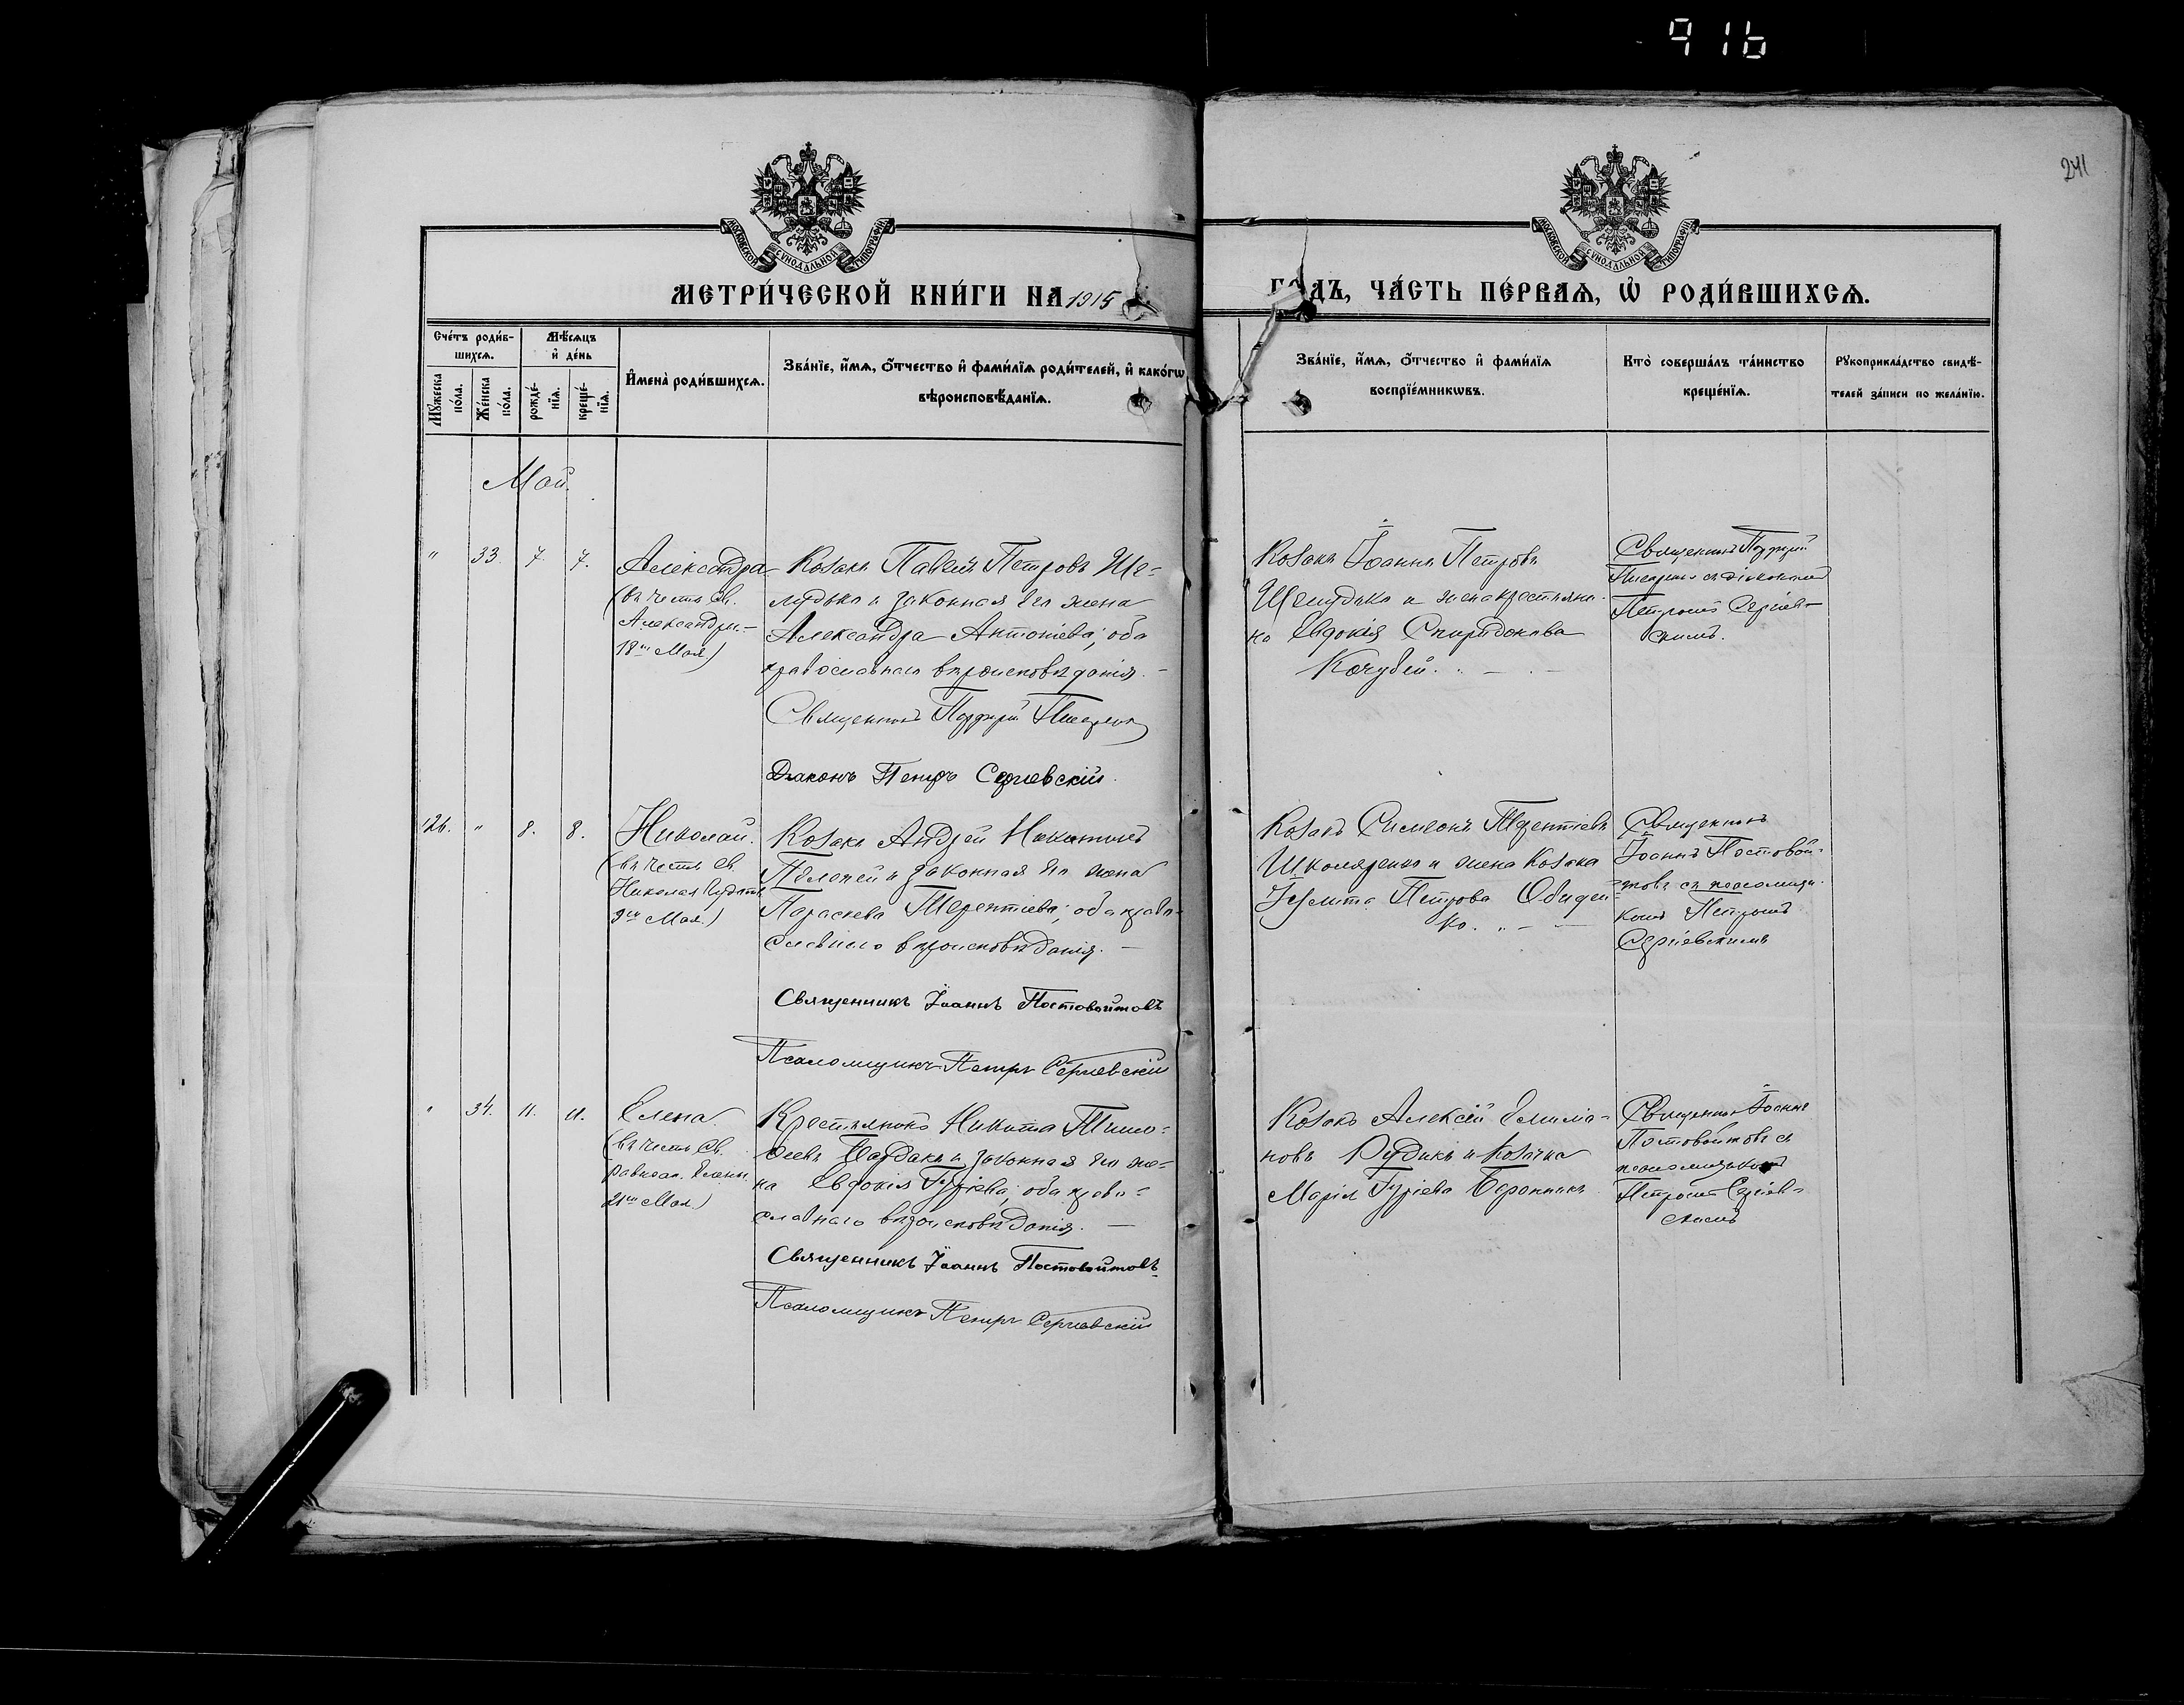 916
241
МОСКОВСКОЙ СѴНОДАЛЬНОЙ ТИПОГРАФІИ
МОСКОВСКОЙ СѴНОДАЛЬНОЙ ТИПОГРАФІИ
МЕТРИ́ЧЕСКОЙ КНИ́ГИ НА 1915
ГО́ДЪ, ЧА́СТЬ ПЕ́РВАѦ, Ѡ҆ РОДИ́ВШИХСѦ.
Сче́тъ роди́в-
шихсѧ.
Мꙋ́жеска
по́ла.
Же́нска
по́ла.
Мѣ́сѧцъ
и҆ де́нь
рожде́-
нїѧ.
креще́-
нїѧ.
И҆мена̀ роди́вшихсѧ.
Зва́нїе, и҆́мѧ, ѻ҆́тчество и҆ фами́лїѧ роди́телей, и҆ како́гѡ
вѣроисповѣ́данїѧ.
Зва́нїе, и҆́мѧ, ѻ҆́тчество и҆ фами́лїѧ
воспрїе́мникѡвъ.
Кто̀ соверша́лъ та́инство
креще́нїѧ.
Рꙋкоприкла́дство свидѣ́-
телей за́писи по жела́нїю.
Май.
" 33. 7. 7.
Александра
(въ честь св.
Александры.-
18го Мая)
Козакъ Павелъ Петровъ Ше-
лудько и законная его жена
Александра Антоніева; оба
православнаго вѣроисповѣданія. -
Священникъ Порфирій
Діаконъ Петръ Сергіевскій.
Козакъ Іоаннъ Петровъ
Шелудько и жена крестьяни-
на Евдокія Спиридонова
Кочубей.
Священникъ Порфирій
съ діакономъ
Петромъ Сергіев-
скимъ.
126. " 8. 8.
Николай.
(въ честь св.
Николая Чудотв.
9го Мая.)
Козакъ Андрей Никитинъ
и законная его жена
Параскева Терентіева; оба право-
славнаго вѣроисповѣданія. -
Священникъ Іоаннъ Постовойтовъ
Псаломщикъ Петръ Сергіевскій
Козакъ Симеонъ Терентіевъ
Школяренко и жена козака
Петрова Обиден-
ко.
Священникъ
Іоаннъ Постовой-
товъ съ псаломщи-
комъ Петромъ
Сергіевскимъ
" 34. 11. 11.
Елена
(въ честь Св.
равноап. Елены
21го Мая.)
Крестьянинъ Никита Тимо-
феевъ и законная его же-
на Евдокія Гуріева; оба право-
славнаго вѣроисповѣданія. -
Священникъ Іоаннъ Постовойтовъ
Псаломщикъ Петръ Сергіевскій
Козакъ Алексій
новъ Рудикъ и козачка
Марія Гуріева
Священникъ Іоаннъ
Постовойтовъ съ
псаломщикомъ
Петромъ Сергіев-
скимъ